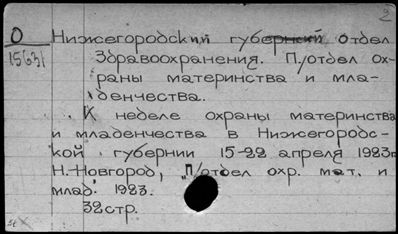 2
О Нижегородский губернский отдел
15631 Здравоохранения. П/отдел ох-
раны материнства и мла-
денчества.
К неделе охраны материнства
и младенчества в Нижегородс-
кой губернии 15-22 апреля 1923г.
Н.-Новгород, П/отдел охр. мат. и
млад. 1923.
32стр.